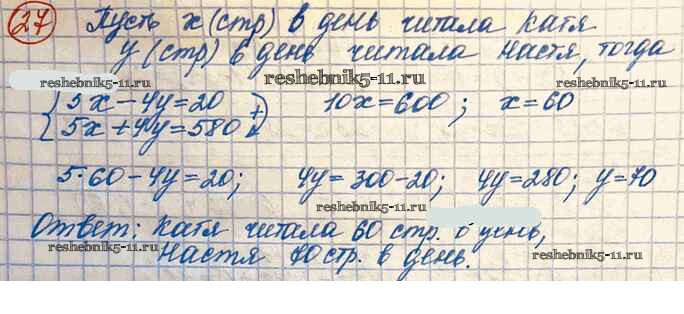 27 Пусть x (стр) в день читала Катя
y (стр) в день читала Настя, тогда
reshebnik5-11.ru reshebnik5-11.ru reshebnik5-11.ru
5x - 4y = 20 10x = 600; x = 60
5x + 4y = 580 +
5·60 - 4y = 20; 4y = 300 - 20; 4y = 280; y = 70
reshebnik5-11.ru
Ответ: Катя читала 60 стр. в день,
reshebnik5-11.ru reshebnik5-11.ru
Настя 70 стр. в день.